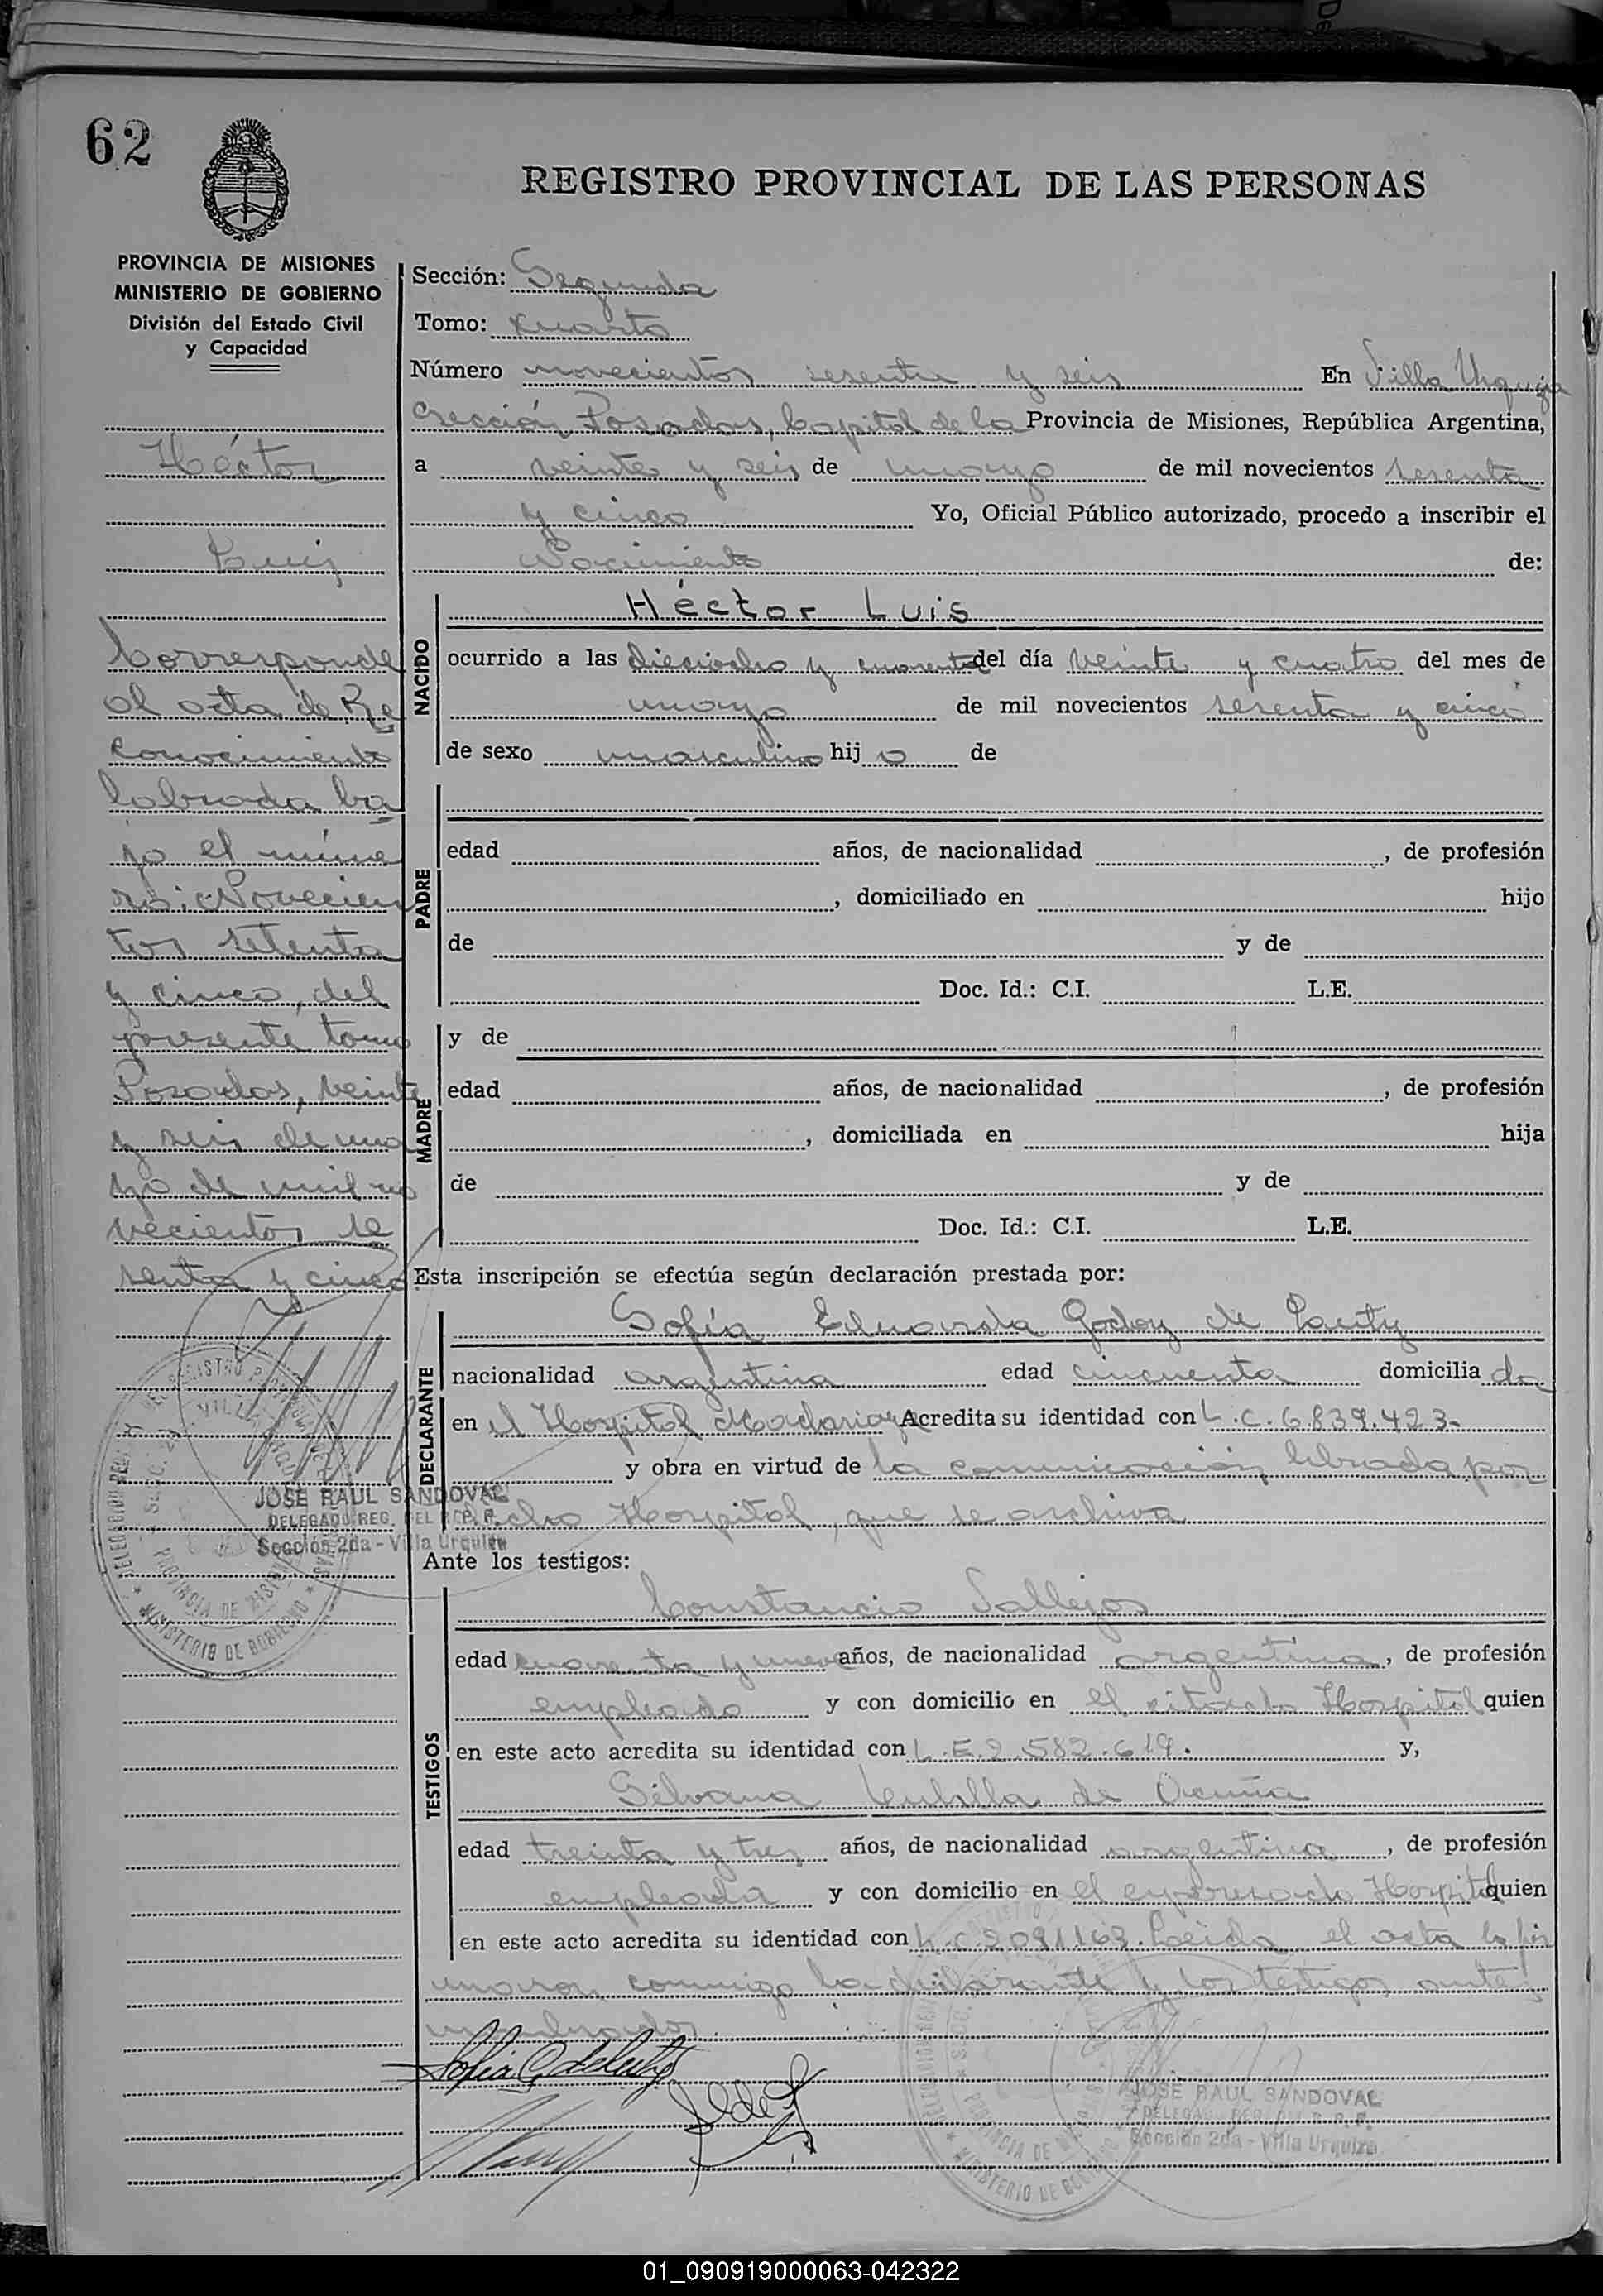 62
REGISTRO PROVINCIAL DE LAS PERSONAS
PROVINCIA DE MISIONES
MINISTERIO DE GOBIERNO
División del Estado Civil
y Capacidad
Héctor
Luis
Corresponde
al acta de Re
conocimiento
labrada ba
jo el núme
ro: Novecien
tos setenta
y cinco, del
presente tomo
Posadas, veinte
y seis de ma
yo de mil no
vecientos se
senta y cinco
JOSE RAUL SANDOVAL
DELEGADO REG. DEL R. P. P.
Sección 2da - Villa Urquiza
Sección: Segunda
Tomo: Cuarto
Número novecientos sesenta y seis En Villa Urquiza
Sección Posadas, Capital de la Provincia de Misiones, República Argentina,
a veinte y seis de mayo de mil novecientos sesenta
y cinco Yo, Oficial Público autorizado, procedo a inscribir el
Nacimiento de:
NACIDO
Héctor Luis
ocurrido a las dieciocho y cuarenta del día veinte y cuatro del mes de
mayo de mil novecientos sesenta y cinco
de sexo masculino hijo de
PADRE
edad años, de nacionalidad , de profesión
, domiciliado en hijo
de y de
Doc. Id.: C.I. L.E.
MADRE
y de
edad años, de nacionalidad , de profesión
, domiciliada en hija
de y de
Doc. Id.: C.I. L.E.
Esta inscripción se efectúa según declaración prestada por:
DECLARANTE
Sofía Eduarda Godoy de
nacionalidad argentina edad cincuenta domiciliada
en el Hospital Madariaga Acredita su identidad con L.C. 6.839.423-
y obra en virtud de la comunicación librada por
dicho Hospital, que se archiva
Ante los testigos:
TESTIGOS
Constancio Vallejos
edad cuarenta y nueve años, de nacionalidad argentina, de profesión
empleado y con domicilio en el citado Hospital quien
en este acto acredita su identidad con L.E. 2.582.619. y,
Silvana de Acuña
edad treinta y tres años, de nacionalidad argentina, de profesión
empleada y con domicilio en el expresado Hospital quien
en este acto acredita su identidad con L.C 2091163. Leida el acta la fir
maron conmigo la declarante y los testigos antes
JOSE RAUL SANDOVAL
DELEGADO REG. DEL R. P. P.
Sección 2da - Villa Urquiza
01_090919000063-042322